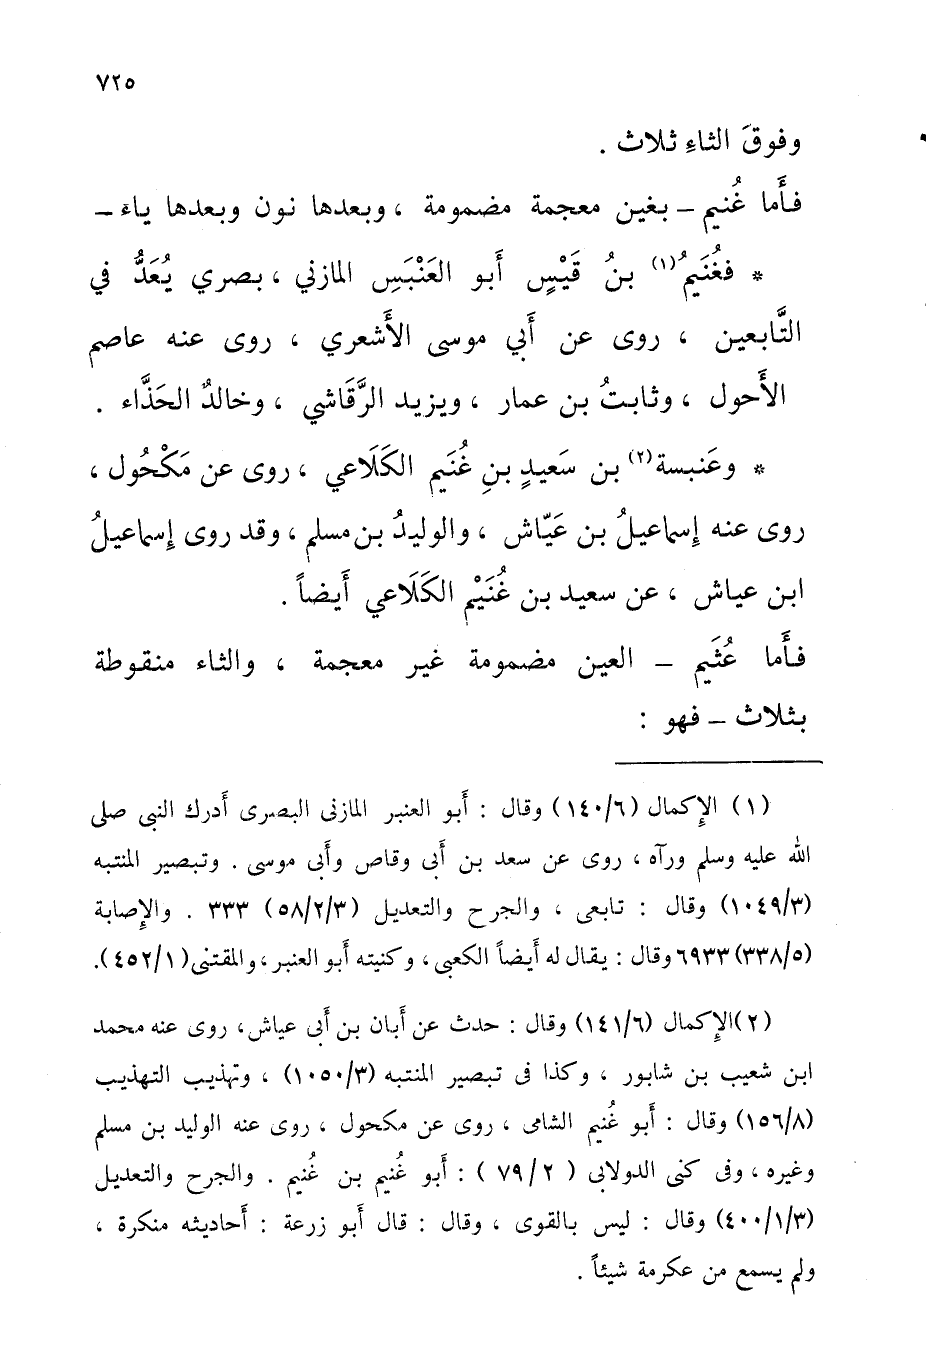 ٧٢٥
وفوقَ الثاءِ ثلاث .
فأَما غُنيم – بغين معجمة مضمومة ، وبعدها نون وبعدها ياء –
* فغُنَيمُ(١) بنُ قَيْسٍ أَبو العَنْبَسِ المازني ، بصري يُعَدُّ في
التَّابعين ، روى عن أَبي موسى الأَشعري ، روى عنه عاصم
الأَحول ، وثابتُ بن عمار ، ويزيد الرَّقَاشي ، وخالدٌ الحَذَّاء .
* وعَنبسة(٢) بن سَعيدٍ بنِ غُنَيم الكَلَاعي ، روى عن مَكْحُول ،
روى عنه إسماعيلُ بن عَيّاش ، والوليدُ بن مسلم ، وقد روى إسماعيلُ
ابن عياش ، عن سعيد بن غُنَيْم الكَلَاعي أَيضاً .
فأَما عُثَيم – العين مضمومة غير معجمة ، والثاء منقوطة
بثلاث – فهو :
(١) الإكمال (١٤٠/٦) وقال : أَبو العنبر المازنى البصرى أَدرك النبى صلى
الله عليه وسلم ورآه ، روى عن سعد بن أَبى وقاص وأَبى موسى . وتبصير المنتبه
(١٠٤٩/٣) وقال : تابعى ، والجرح والتعديل (٥٨/٢/٣) ٣٣٣ . والإصابة
(٣٣٨/٥) ٦٩٣٣ وقال : يقال له أَيضاً الكعبى ، وكنيته أَبو العنبر ، والمقتنى (٤٥٢/١).
(٢) الإكمال (١٤١/٦) وقال : حدث عن أَبان بن أَبى عياش ، روى عنه محمد
ابن شعيب بن شابور ، وكذا فى تبصير المنتبه (١٠٥٠/٣) ، وتهذيب التهذيب
(١٥٦/٨) وقال : أَبو غُنيم الشامى ، روى عن مكحول ، روى عنه الوليد بن مسلم
وغيره ، وفى كنى الدولابى ( ٧٩/٢ ) : أَبو غُنيم بن غُنيم . والجرح والتعديل
(٤٠٠/١/٣) وقال : ليس بالقوى ، وقال : قال أَبو زرعة : أَحاديثه منكرة ،
ولم يسمع من عكرمة شيئاً .